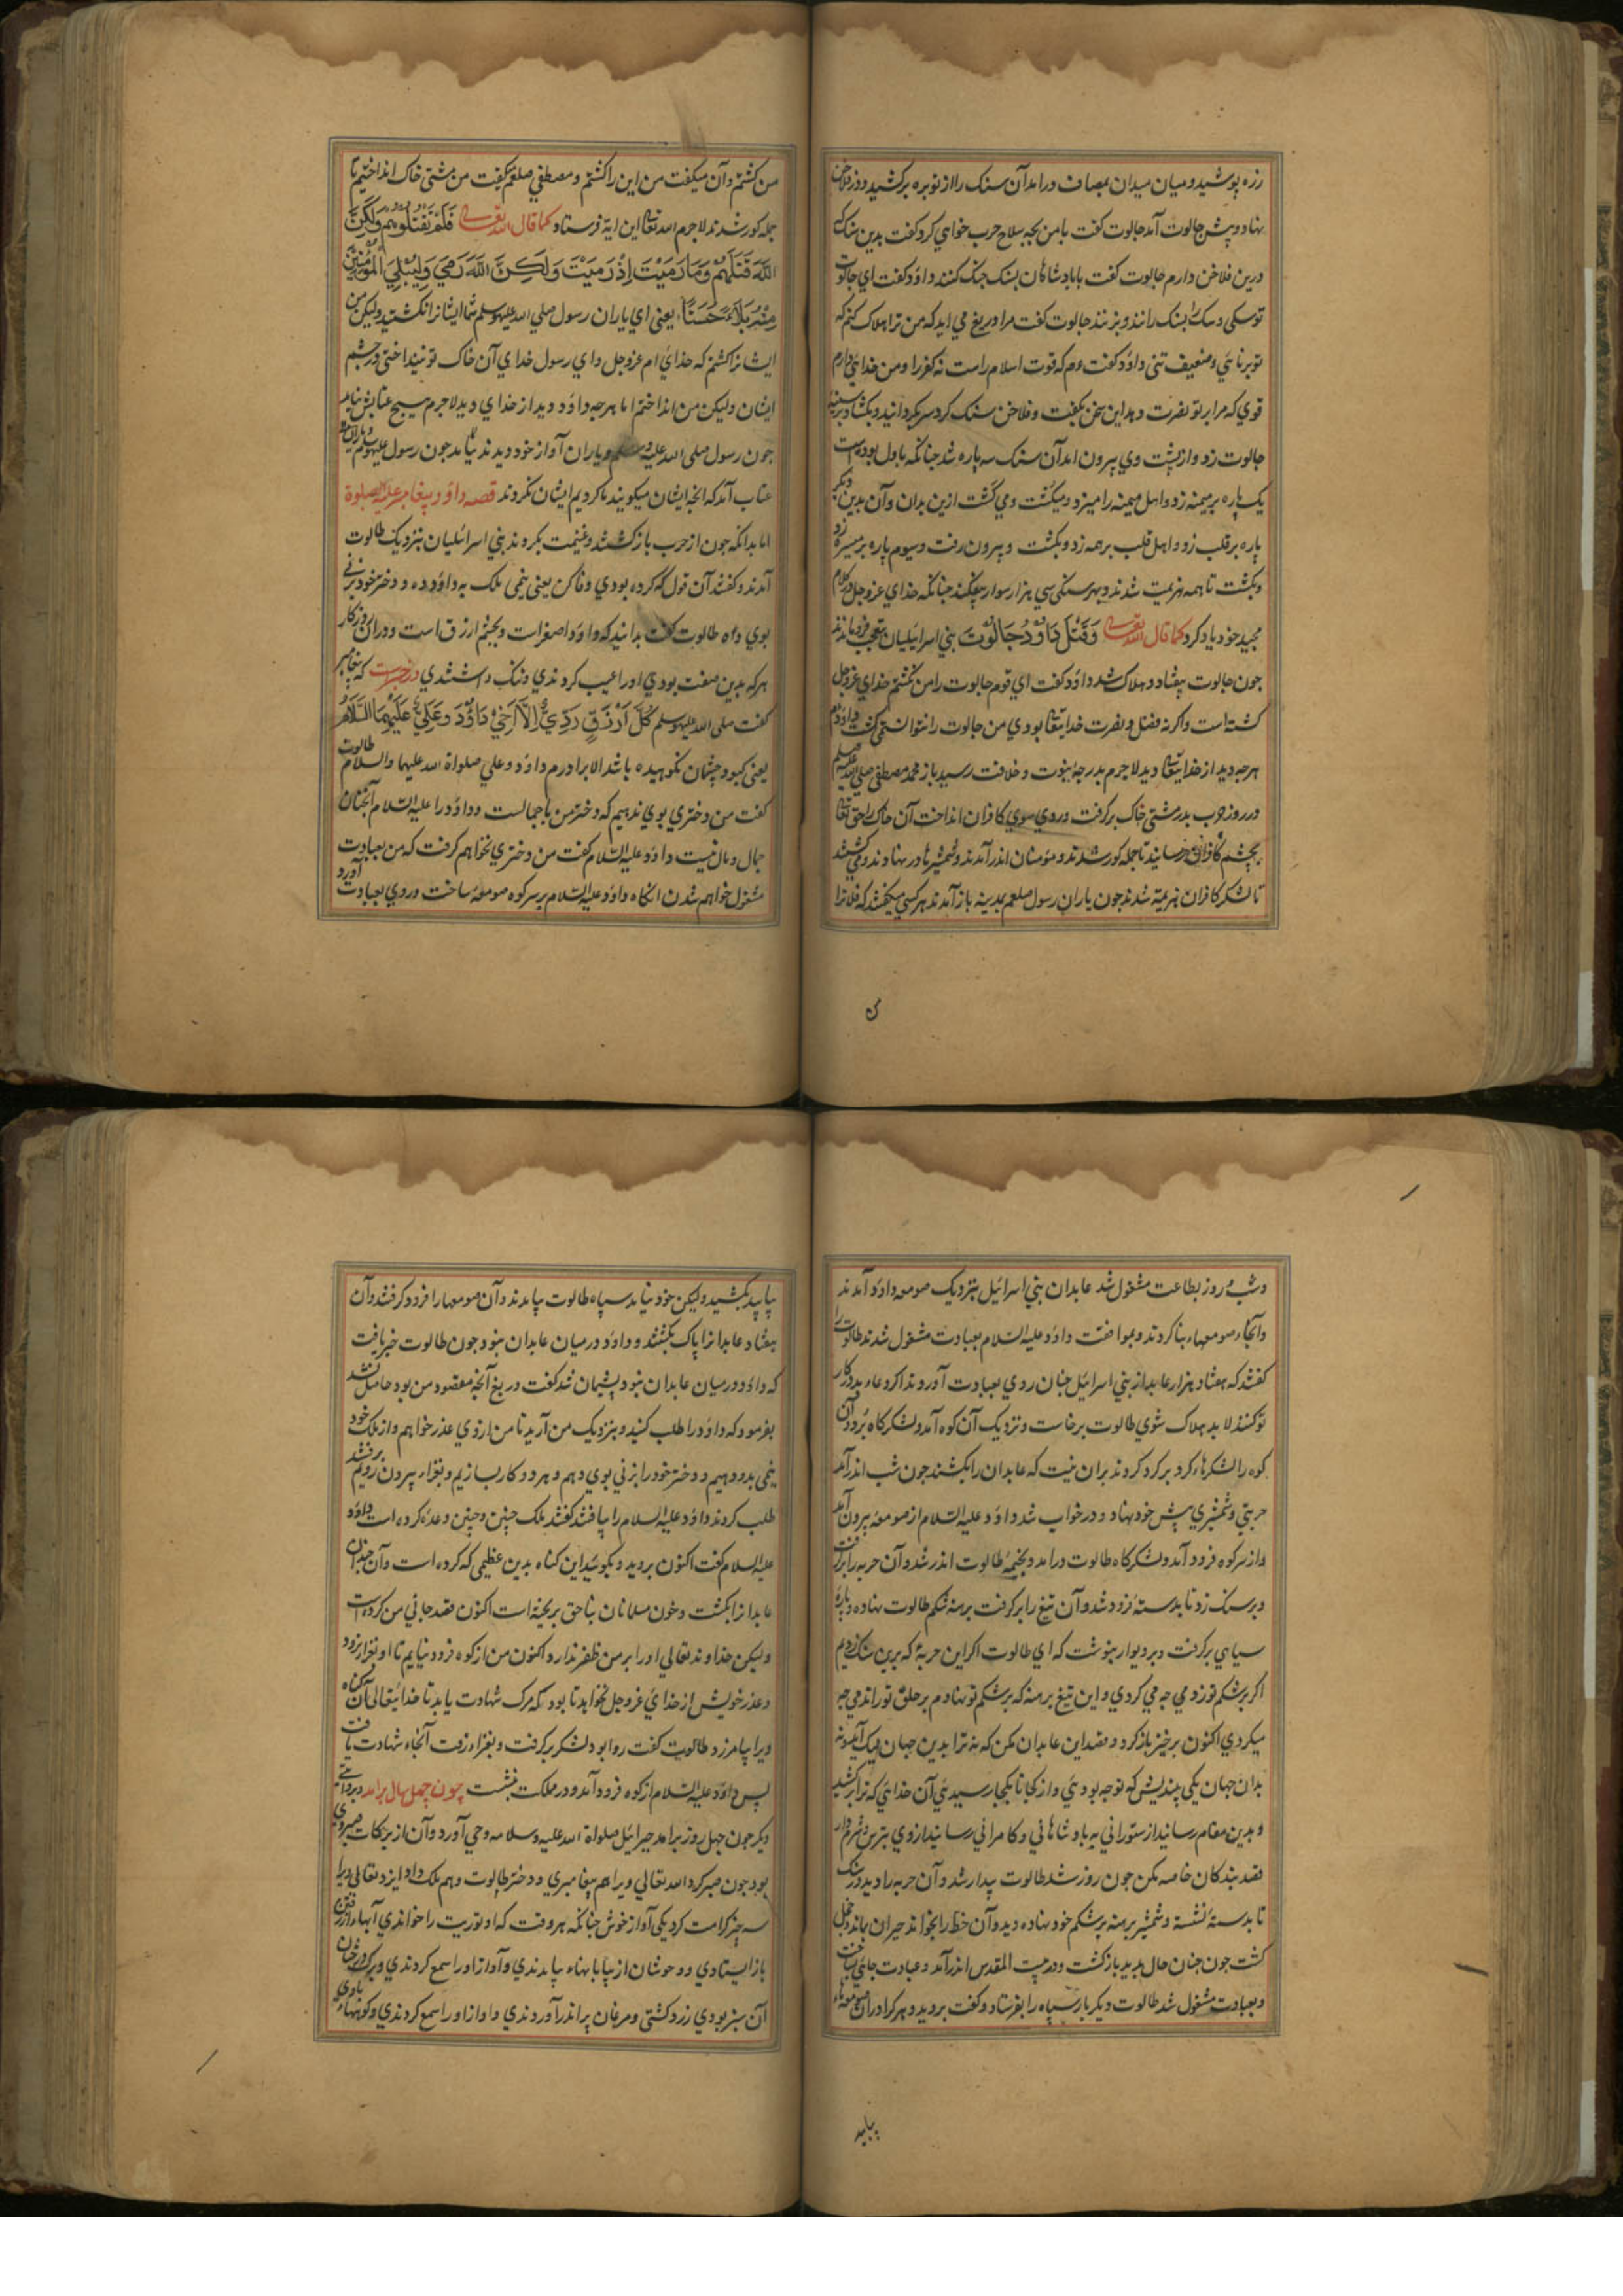 زره پوشید و میان میدان بمصاف درامد آن سنک را از توبره برکشید و در فلاخن
نهاد و پیش جالوت آمد جالوت کفت بامن بچه سلاح حرب خواهي کرد کفت بدین سنک که
درین فلاخن دارم جالوت کفت با پادشاهان بسنک جنک کنند داود کفت اي جالوت
تو سکی و سک را بسنک رانند و بزنند جالوت کفت مرا دریغ مي اید که من ترا هلاک کنم که
تو برنائي و ضعیف تنی داود کفت که قوت اسلام راست نه کفر را و من خدایی دارم
قوي که مرا بر تو نصرت دهد این سخن بکفت و فلاخن سنک کرد سر بکردانید و بکشاد بر سینه
جالوت زد و از پشت وي بیرون امد آن سنک سه پاره شد چنانکه باول بوده است
یک پاره بر میمنه زد و اهل میمنه را میزد و میکشت و مي کشت ازین بدان و آن بدین دیکر
پاره بر قلب زد و اهل قلب بر همه زد و بکشت و بیرون رفت و سیوم پاره بر میسره زد
و بکشت تا همه هزیمت شدند و بهر سنکی سي هزار سوار بیفکند چنانکه خداي عزوجل در کلام
مجید خود یاد کرد کما قال الله تعالی وَقَتَلَ دَاوُدُ جَالُوتَ بني اسرائیلیان بتعجب فروماندند
چون جالوت بیفتاد و هلاک شد داود کفت اي قوم جالوت را من نکشتم خداي عزوجل
کشته است و اکر نه فضل و نصرت خدایتعا بودي من جالوت را نتوانستمی کشت داود هم
هرچه دید از خدایتعا دید لاجرم بدرجهٔ نبوت و خلافت رسید باز محمد مصطفي صلي الله علیه وسلم
در روز حرب بدر مشتی خاک برکرفت و روي سوي کافران انداخت آن خاک را حق تعا
بچشم کافران رسانید تا جمله کور شدند و مؤمنان اندر آمدند و شمشیرها در نهادند و می کشتند
تا لشکر کافران هزیمة شدند چون یاران رسول صلعم بمدینه باز آمدند هر کسي میکفتند که فلانرا
ک
من کشتم و آن میکفت من این را کشتم و مصطفي صلعم کفت من مشتی خاک انداختیم تا
جمله کور شدند لاجرم الله تعا این ایة فرستاد کما قال الله تعالی فَلَمْ تَقْتُلُوهُمْ وَلَکِنَّ
اللَّهَ قَتَلَهُمْ وَمَا رَمَيْتَ إِذْ رَمَيْتَ وَلَكِنَّ اللَّهَ رَمَى وَلِيُبْلِيَ الْمُؤْمِنِينَ
مِنْهُ بَلَاءً حَسَنًا یعنی اي یاران رسول صلي الله علیه وسلم شما ایشانرا نکشتید ولیکن من
ایشانرا کشتم که خداي ام عزوجل و اي رسول خداي آن خاک تو نینداختی در چشم
ایشان ولیکن من انداختم اما هرچه داود دید از خداي دید لاجرم هیچ عتابش نیامد
چون رسول صلی الله علیه وسلم و یاران آواز خود دیدند نیامد چون رسول علیه وسلم و یاران را
عتاب آمد که انچه ایشان میکویند ما کردیم ایشان نکردند قصه داود پیغامبر علیه الصلوة
اما بدانکه چون از حرب باز کشتند و غنیمت بکردند بني اسرائیلیان بنزدیک طالوت
آمدند و کفتند آن قول که کرده بودي وفا کن یعنی نیمی ملک به داود ده و دختر خود بزني
بوي ده طالوت کفت بدانید که داود اصغر است و بچشم ازرق است و دران روزکار
هر که بدین صفت بودي اورا عیب کردندي و ننک داشتندي در خبر است که پیغامبر
کفت صلی الله علیه وسلم کُلُّ اَزْرَقٍ رَدِيٌّ اِلَّا اَخِيْ دَاوُدَ وَ عَلِيٌّ عَلَيْهِمَا السَّلَامُ
یعنی کبود چشمان نکوهیده باشد الا برادرم داود و علي صلواة الله علیهما والسلام طالوت
کفت من دختري بوي ندهیم که دختر من باجمالست و داود را علیه السّلام آنچنان
جمال و مال نیست داود علیه السّلام کفت من دختري نخواهم کرفت که من بعبادت
مشغول خواهم شدن انکاه داود علیه السّلام بر سر کوه صومعه ساخت و روي بعبادت آورد
و شب و روز بطاعت مشغول شد عابدان بني اسرائیل بنزدیک صومعه داود آمدند
و آنجا صومعهاء بنا کردند و بموافقت داود علیه السّلام بعبادت مشغول شدند طالوت را
کفتند که هفتاد هزار عابد از بني اسرائیل چنان روي بعبادت آوردند اکر دعاء بد در کار
تو کنند لابد هلاک شوي طالوت برخاست و نزدیک آن کوه آمد و لشکرکاه بزد و آن
کوه را لشکرهاء کرد بر کرد کردند بران نیت که عابدان را بکشند چون شب اندر آمد
حربتي و شمشیري پیش خود نهاد و در خواب شد داود علیه السّلام از صومعه بیرون آمد
و از سر کوه فرود آمد و لشکرکاه طالوت درامد و بخیمهٔ طالوت اندر شد و آن حربه را برکرفت
و بر سنک زد تا بدسته فرود شد و آن تیغ را برکرفت برهنه شکم طالوت نهاده و پارهٔ
سیاهي برکرفت و بر دیوار بنوشت که اي طالوت اکر این حربهٔ که برین سنک زدیم
اکر بر شکم تو زدمي چه مي کردي و این تیغ برهنه که بر شکم تو نهادم بر حلق تو راندمي چه
میکردي اکنون برخیز باز کرد و قصد این عابدان مکن که نه ترا بدین جهان
بدان جهان یکي بیندیش که تو چه بودئي و از کجا تا بکجا رسیدئي آن خدایي که ترا برکشید
و بدین مقام رسانید از ستوراني به پادشاهاني و کامراني رسانید ازوي بترس و شرم دار
قصد بندکان خاصه مکن چون روز شد طالوت بیدار شد و آن حربه را دید در سنک
تا بدسته نشسته و شمشیر برهنه بر شکم خود نهاده دید و آن خط را بخواند حیران بماند و خجل
کشت چون چنان حال بدید باز کشت و در بیت المقدس اندر آمد و عبادت جائي ساخت
و بعبادت مشغول شد طالوت دیکر بار سپاه را بفرستاد و کفت بروید و هر کرا دران صومعها
بیابید
بیابید بکشید ولیکن خود نیامد سپاه طالوت بیامدند و آن صومعها را فرود کرفتند و آن
هفتاد عابدانرا پاک بکشتند و داود در میان عابدان نبود چون طالوت خبر یافت
که داود در میان عابدان نبود پشیمان شد کفت دریغ آنچه مقصود من بود حاصل نشد
بفرمود که داود را طلب کنید و بنزدیک من آرید تا من ازوي عذر خواهم و از ملک خود
نیمی بدو دهیم و دختر خود را بزني بوي دهم و هر دو کار بسازیم و بغزاء بیرون رویم برفتند
طلب کردند داود علیه السلام را یافتند کفتند ملک چنین و چنین وعده کرده است داود
علیه السلام کفت اکنون بروید و بکوئید این کناه بدین عظیمي که کرده است و آن چندان
عابدانرا بکشت و خون مسلمانان بناحق بریخته است اکنون قصد جاني من کرده است
ولیکن خداوند تعالي اورا بر من ظفر ندارد اکنون من از کوه فرود نیایم تا او بغزا نرود
و عذر خویش از خداي عزوجل نخواهد تا بود که مرک شهادت یابد تا خدایتعالی آن کناه
ویرا بیامرزد طالوت کفت روا بود لشکر برکرفت و بغزاء رفت آنجاء شهادت یافت
پس داود علیه السّلام از کوه فرود آمد و در مملکت بنشست چون چهل سال برامد و بروایتي
دیکر چون چهل روز برامد جبرائیل صلواة الله علیه و سلامه وحي آورد و آن از برکات صبر وي
بود چون صبر کرد الله تعالي ویرا هم پیغامبري و دختر طالوت و هم ملک داد ایزد تعالي ویرا
سه چیز کرامت کرد یکي آواز خوش چنانکه هر وقت که او توریت را خواندي آبهاء از رفتن
باز ایستادي و وحوشان از بیابانهاء بیامدندي و آواز اورا سمع کردندي و برک درختان
آن سبز بودي زرد کشتی و مرغان پر اندر آوردندي و اواز اورا سمع کردندي و کوههاء با وي